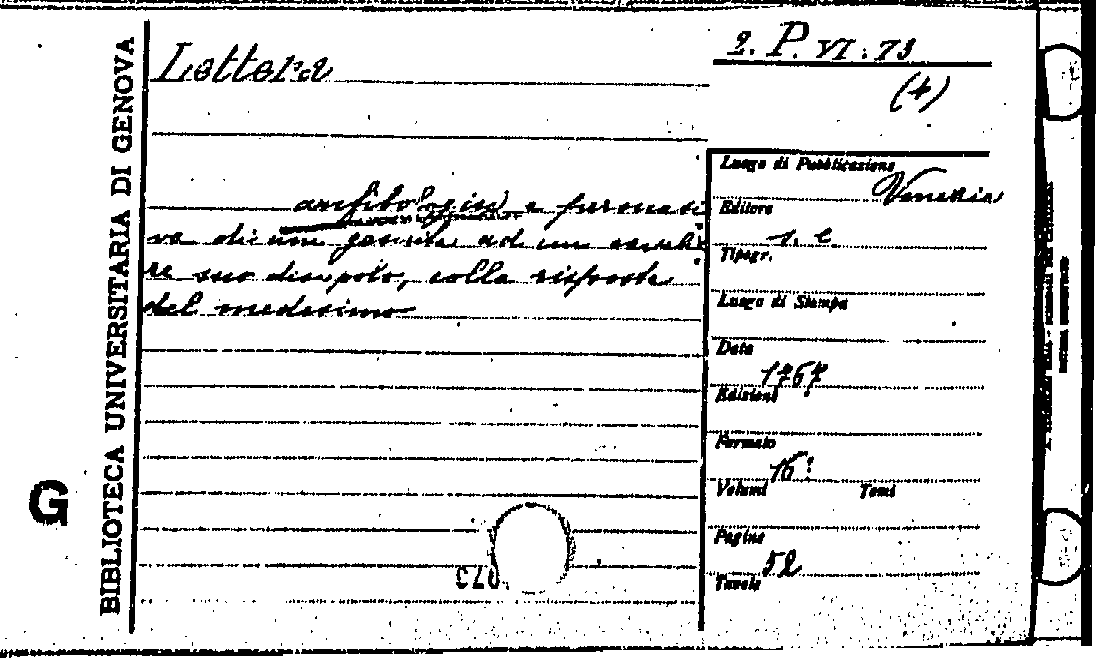 BIBLIOTECA UNIVERSITARIA DI GENOVA
G
Lettera
anfibologica e furmati
va di un gesuita ad un cavalie
re suo discepolo, colla risposta
del medesimo
2. P. VI. 73
(4)
Luogo di Pubblicazione
Venezia
Editore
s. e.
Tipogr.
Luogo di Stampa
Data
1767
Edizione
Formato
16º
Volumi Tomi
Pagine
52
Tavole